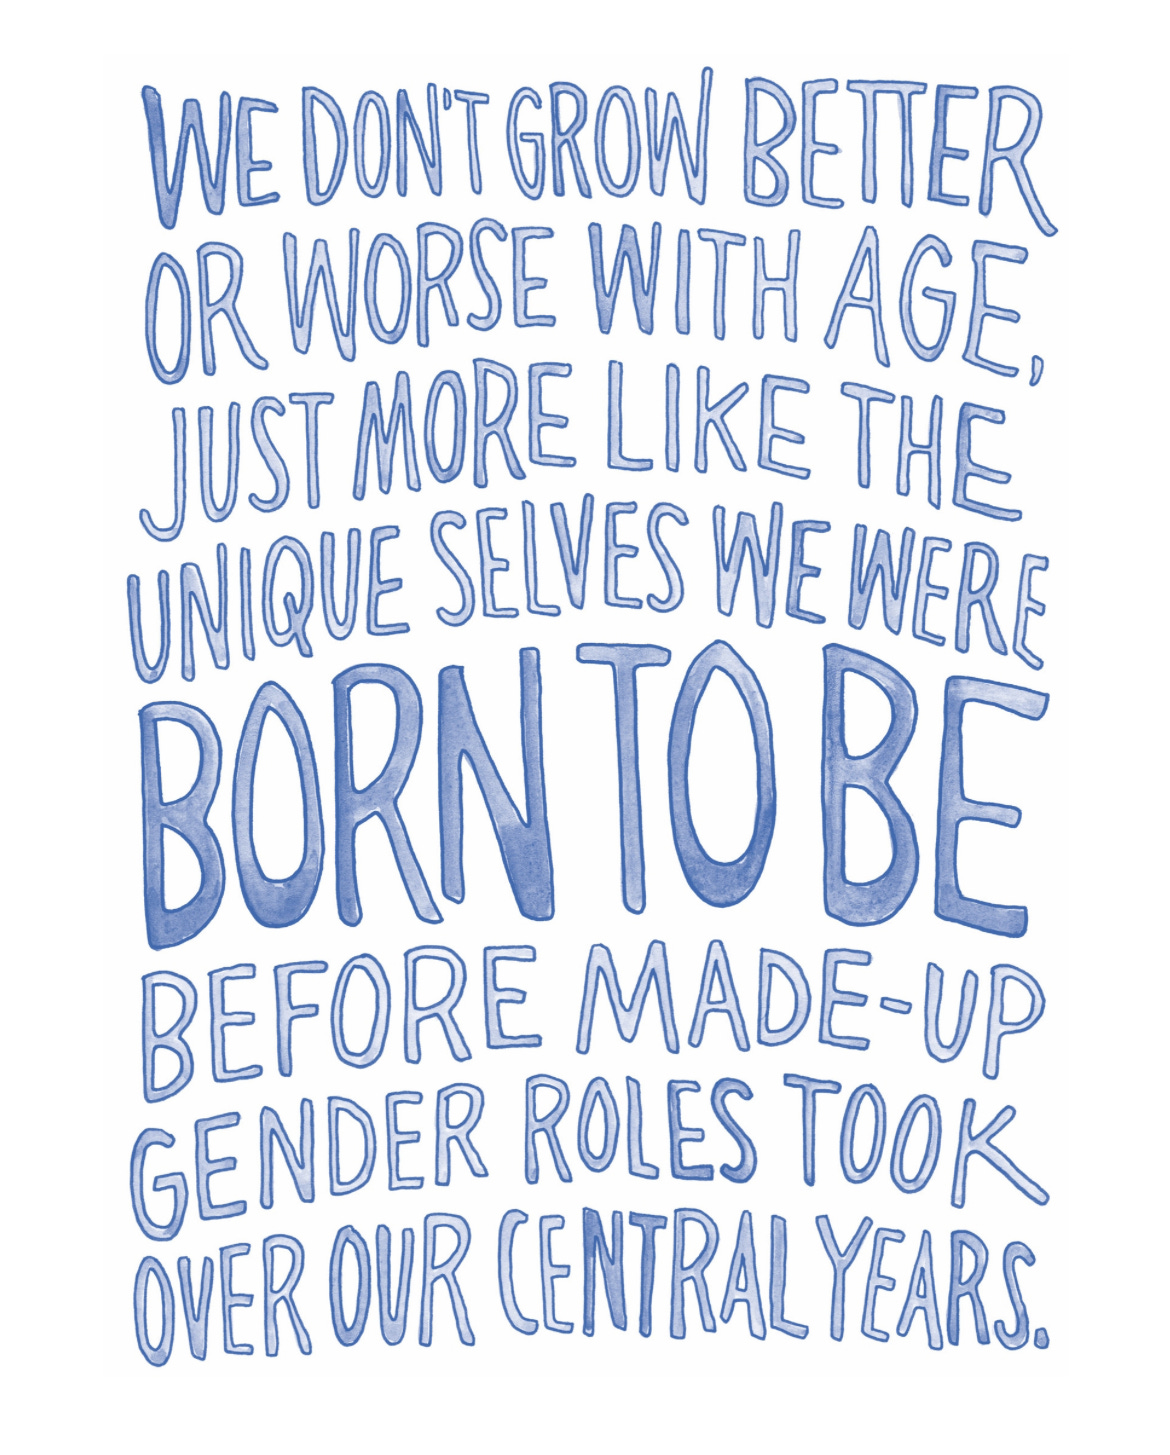 WE DON'T GROW BETTER
OR WORSE WITH AGE,
JUST MORE LIKE THE
UNIQUE SELVES WE WERE
BORN TO BE
BEFORE MADE-UP
GENDER ROLES TOOK
OVER OUR CENTRAL YEARS.